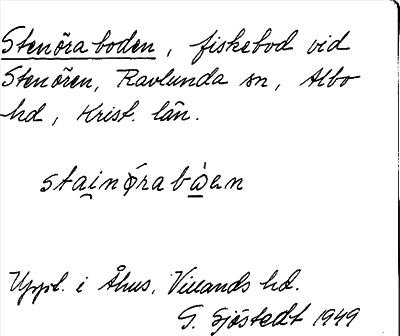 Stenöraboden, fiskebod vid
Stenören, Ravlunda sn, Albo
hd, Krist. län.
stai̯nǿrabὰ̱ən
Uppl. i Åhus, Villands hd.
G. Sjöstedt 1949